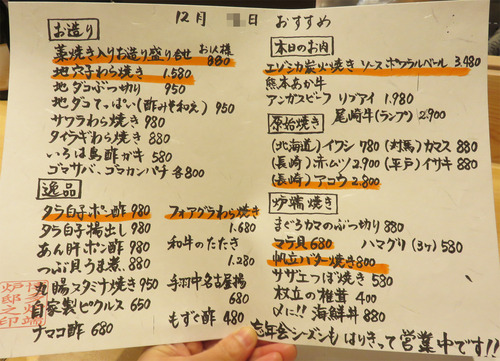 12月 日 おすすめ
お造り
藁焼き入りお造り盛り合せ お一人様 880
地穴子わら焼き 1.580
地ダコぶつ切り 950
地ダコてっぱい(酢みそ和え) 950
サワラわら焼き 980
タイラギわら焼き 980
いろは島酢ガキ 580
ゴマサバ、ゴマカンパチ 各800
逸品
タラ白子ポン酢 980
タラ白子梅出し 980
あん肝ポン酢 980
つぶ貝うま煮 880
丸腸スタジオ焼き 950
自家製ピクルス 650
ナマコ酢 680
フォアグラわら焼き 1.680
和牛のたたき 1.280
手羽中名古屋揚 680
もずく酢 480
本日のお肉
エゾシカ炭火焼き ソースポワヴルベール 3.480
熊本あか牛
アンガスビーフ リブアイ 1.980
尾崎牛(ランプ) 2.900
原始焼き
(北海道)イワシ 780 (対馬)カマス 880
(長崎)赤ムツ 2,900 (平戸)イサキ 880
(長崎)アコウ 2.800
炉端焼き
まぐろカマのぶつ切り 880
マテ貝 680 ハマグリ(3ヶ) 580
帆立バター焼き 800
サザエつぼ焼き 580
枝立の椎茸 400
〆に!! 海鮮丼 880
忘年会シーズンもはりきって営業中です!!